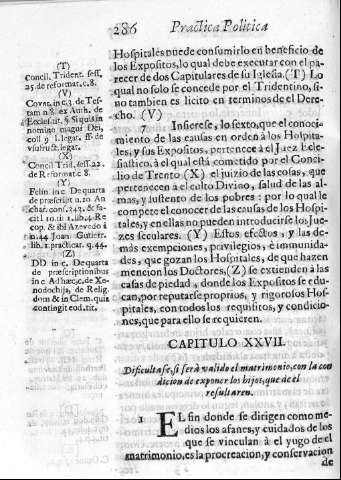 286 Practica Politica
(T)
Concil. Trident. sess.
25. de reformat. c. 8.
(V)
Covar. in c. 3. de Tes-
tam n. 8. ex Auth. de
Ecclesiast. § Si quis in
nomine magni Dei,
coll. 9. l. legat. ff. de
usufruct. legat.
(X)
Concil Trid. sess. 22.
de Reformat c. 8
(Y)
Felin in c. De quarta
de præscript n. 10 An
char. conf. 243. & fa-
cit l. 10. tit. 1. lib. 4. Re
cop. & ibi Azevedo i
n. 44. Joan Gutierr.
lib. 1. practicar. q. 44.
(Z)
DD in c. De quarta
de præscriptionibus
in c Ad hæc, c. de Xe-
nodochijs, de Relig.
dom & in Clem. quia
contingit eod. tit.
Hospitales puede consumirlo en beneficio de
los Expositos, lo qual debe executar con el pa-
recer de dos Capitulares de su Iglesia. (T) Lo
qual no solo se concede por el Tridentino, si-
no tambien es licito en terminos de el Dere-
cho. (V)
7 Insierese, lo sexto, que el conoci-
miento de las causas en orden à los Hospita-
les, y sus Expositos, pertenece à el Juez Ecle-
siastico, à el qual està cometido por el Conci-
lio de Trento (X) el juizio de las cosas, que
pertenecen à el culto Divino, salud de las al-
mas, y sustento de los pobres: por lo qual le
compete el conocer de las causas de los Hospi-
tales, y en ellas no pueden introducirse los Jue-
zes seculares. (Y) Estos efectos, y las de-
màs exempciones, privilegios, è immunida-
des, que gozan los Hospitales, de que hazen
mencion los Doctores, (Z) se extienden à las
casas de piedad, donde los Expositos se edu-
can, por reputarse proprios, y rigorosos Hos-
pitales, con todos los requisitos, y condicio-
nes, que para ello se requieren.
CAPITULO XXVII.
Dificultase, si serà valido el matrimonio, con la con
dicion de exponer los hijos, que de èl
resultaren.
1 EL fin donde se dirigen como me-
dios los afanes, y cuidados de los
que se vinculan à el yugo de el
matrimonio, es la procreacion, y conservacion
de